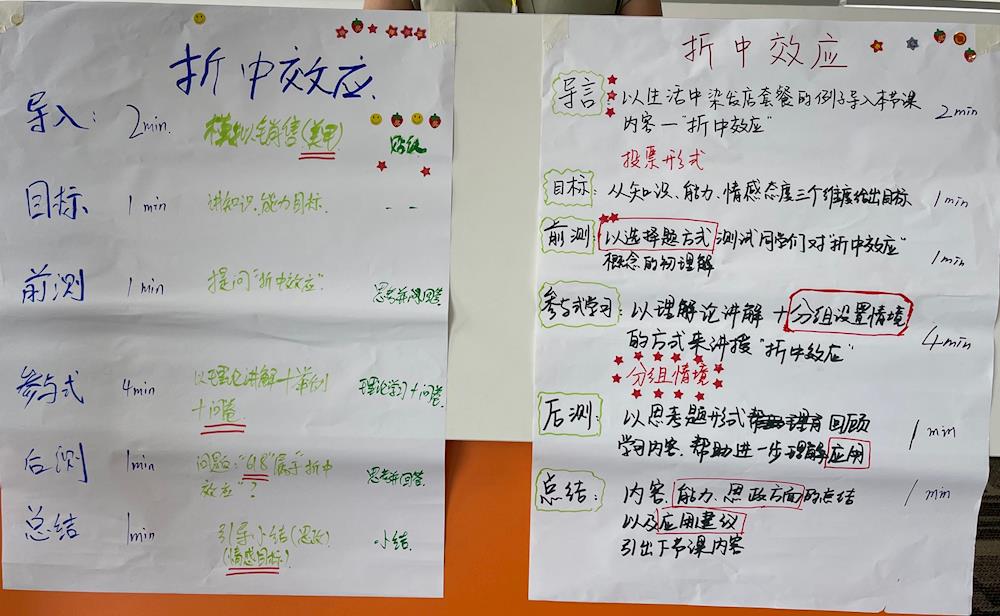 折中效应
导入: 2min. 模拟销售(美甲) 贴纸
目标 1min 讲知识、能力目标. — —
前测 1min 提问"折中效应". 思考并回答
参与式 4min 以理论讲解+举例 理论学习+问卷.
+问卷
后测 1min 问题: "618"属于"折中 思考并回答.
效应"?
总结 1min 引导小结(思政) 小结.
(情感目标)
折中效应
导言: 以生活中染发店套餐的例子导入本节课 2min
内容—"折中效应"
投票形式
目标: 从知识、能力、情感态度三个维度给出目标 1min
前测: 以选择题方式测试同学们对"折中效应" 1min
概念的初理解
参与式学习: 以理解论讲解+分组设置情境 4min
的方式来讲授"折中效应"
分组情境
后测: 以思考题形式 回顾 1min
学习内容、帮助进一步理解应用
总结: 内容、能力、思政方面的总结 1min
以及应用建议
引出下节课内容